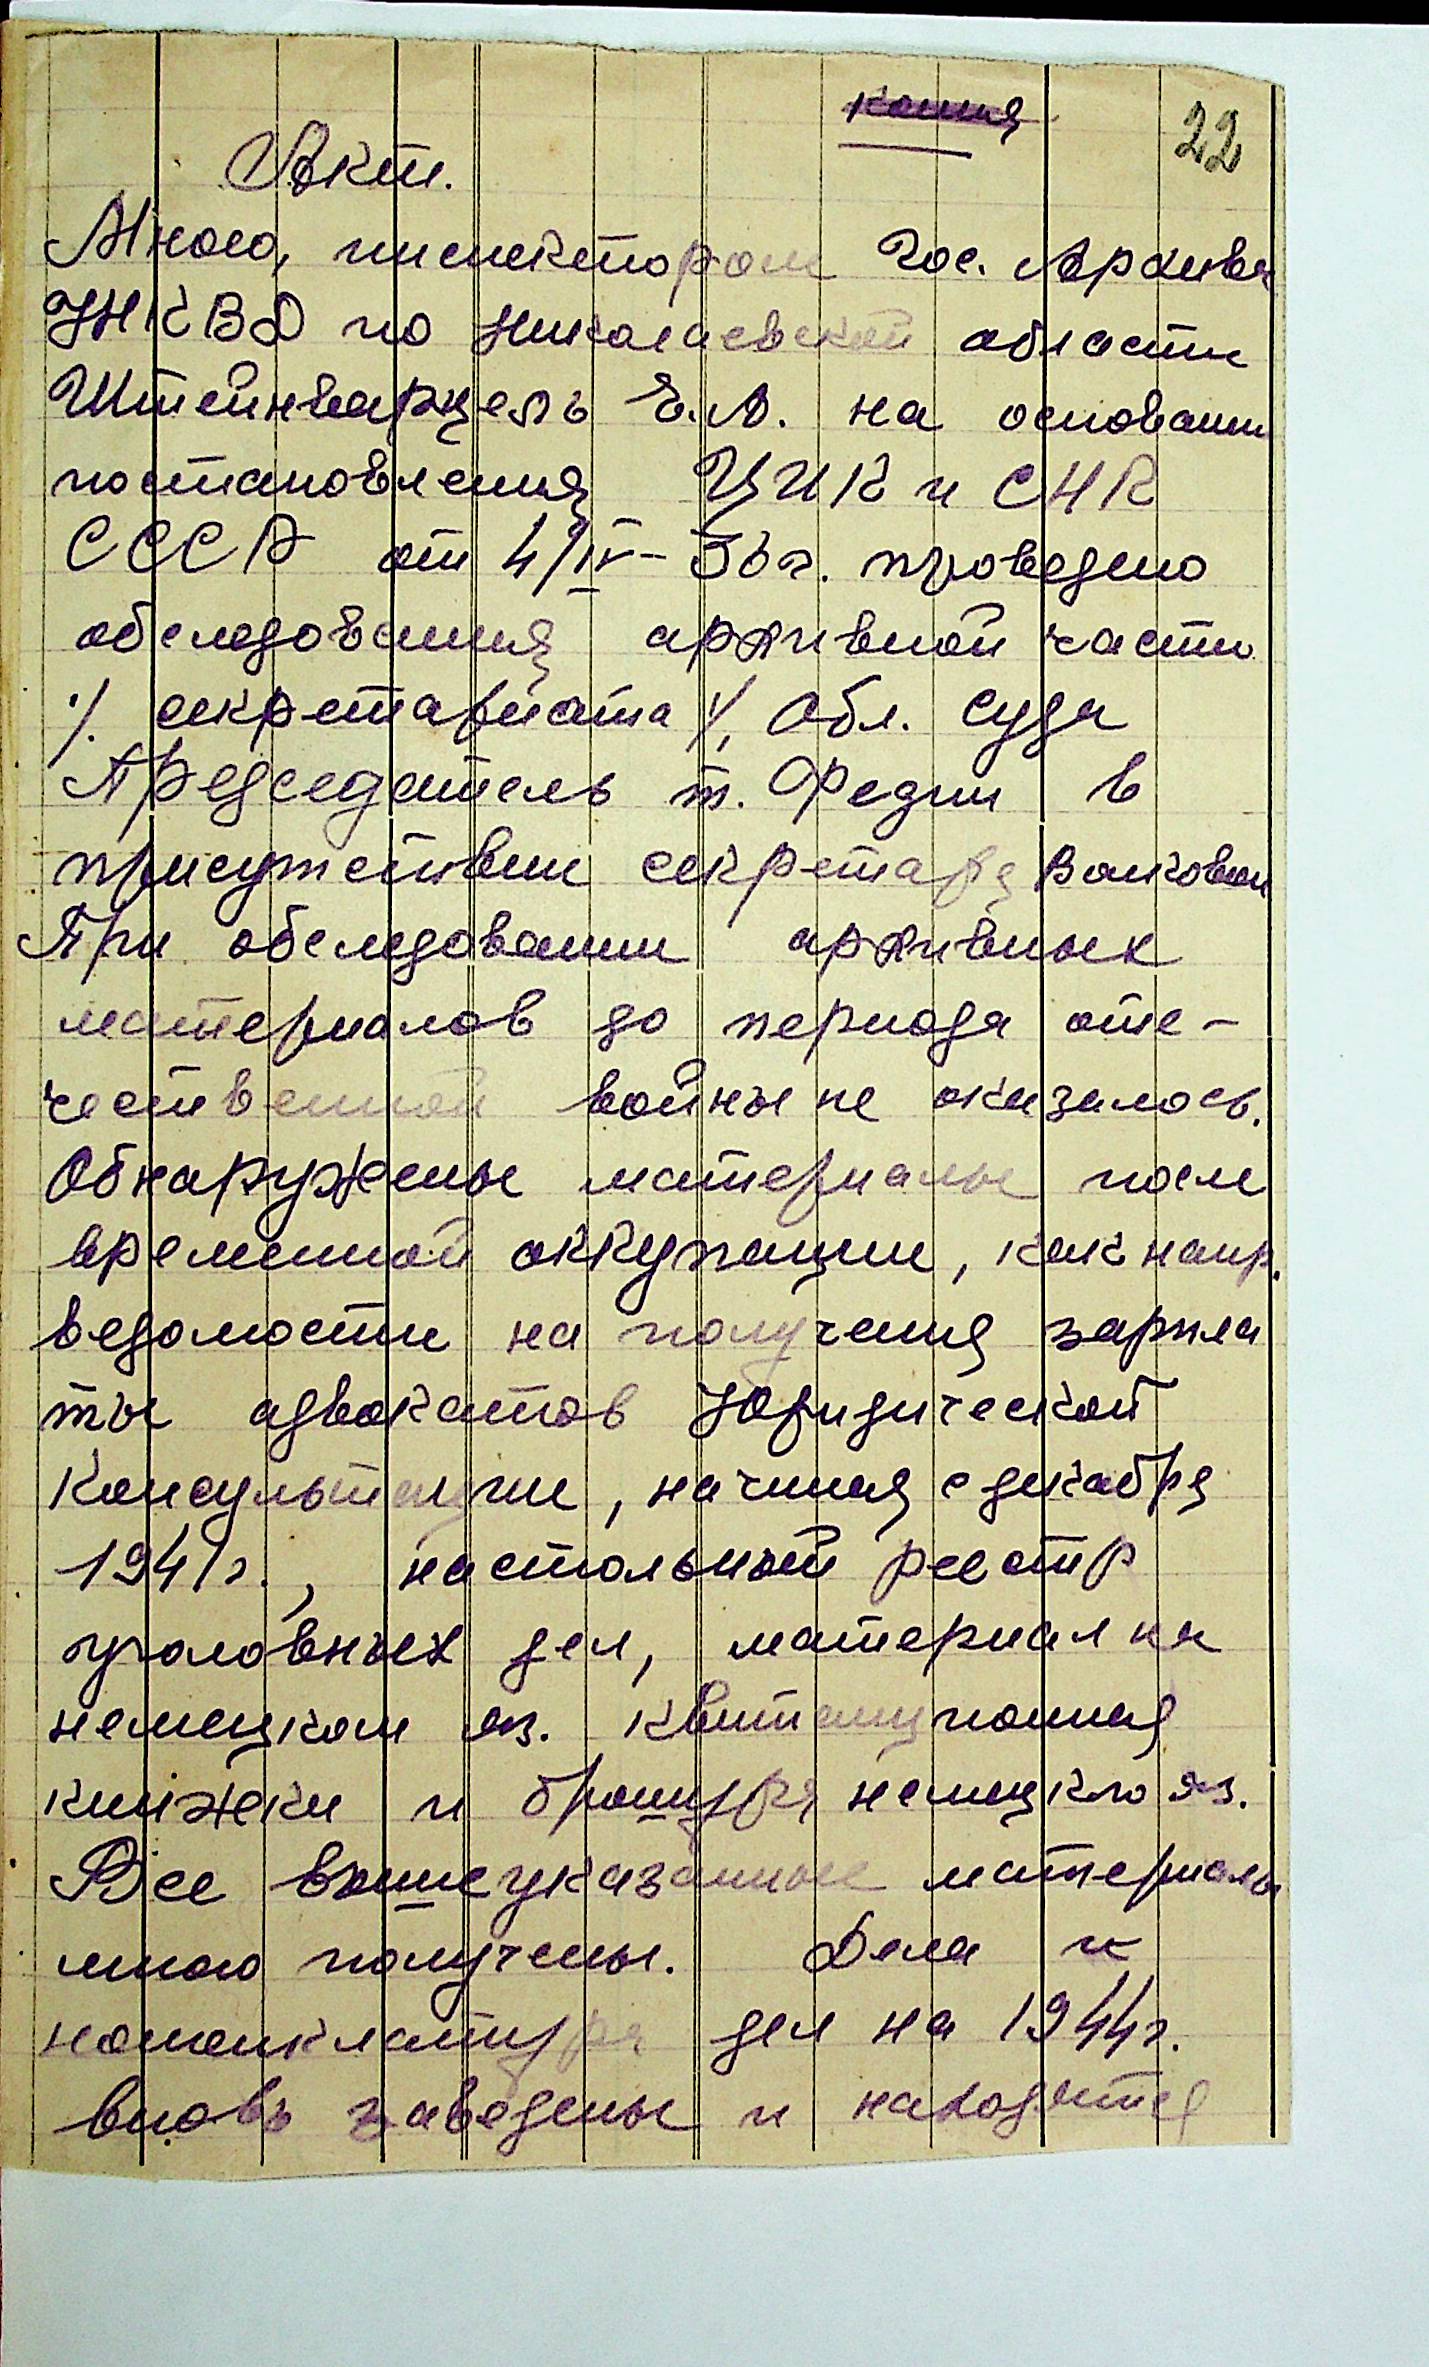 копия
22
Акт.
Мною, инспектором Гос. Архива
УНКВД по Николаевской области
Штейнварцель Е.А. на основании
постановления ЦИК и СНК
СССР от 4/IV-36г. проведено
обследования архивной части
/. секретариата /, Обл. суда
Председатель т. Федин в
присутствии секретаря Волковой
При обследовании архивных
материалов до периода оте-
чественной войны не оказалось.
Обнаружены материалы после
временной оккупации, как напр.
ведомости на получения зарпла
ты адвокатов Юридической
Консультации, начиная с декабря
1941г., настольный реестр
уголовных дел, материал на
немецком яз. квитанционная
книжки и брошюра немецкго яз.
Все вышеуказанные материалы
мною получены. Дела и
номенклатура дел на 1944г.
вновь заведены и находятся